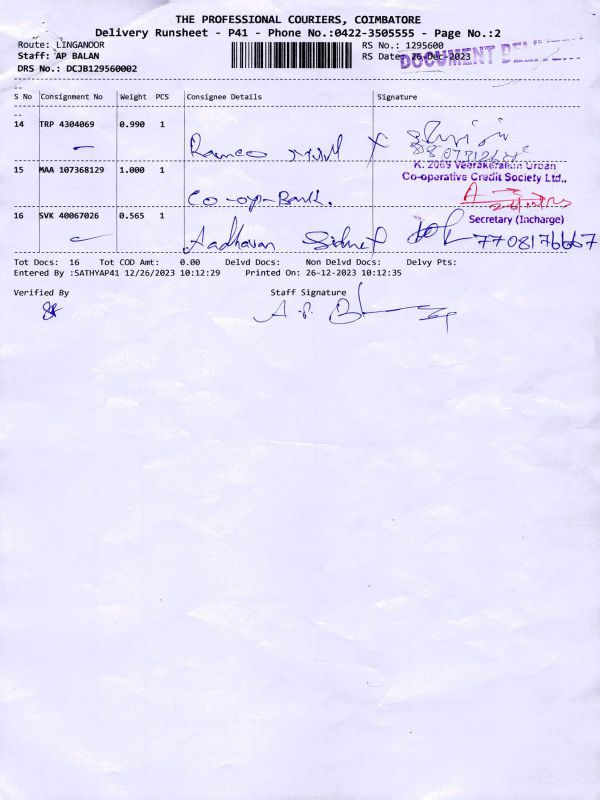 THE PROFESSIONAL COURIERS, COIMBATORE
Delivery Runsheet - P41 - Phone No.:0422-3505555 - Page No.:2
Route: LINGANOOR RS No.: 1295600
Staff: AP BALAN RS Date: 26-Dec-2023
DRS No.: DCJB129560002
DOCUMENT
S No Consignment No Weight PCS Consignee Details Signature
14 TRP 4304069 0.990 1
Ramco
15 MAA 107368129 1.000 1
K. 2069 Veerakeralam Urban
Co-operative Credit Society Ltd.,
Co-op-Bank.
Secretary (Incharge)
16 SVK 40067026 0.565 1
Aadhavan 7708176667
Tot Docs: 16 Tot COD Amt: 0.00 Delvd Docs: Non Delvd Docs: Delvy Pts:
Entered By :SATHYAP41 12/26/2023 10:12:29 Printed On: 26-12-2023 10:12:35
Verified By Staff Signature